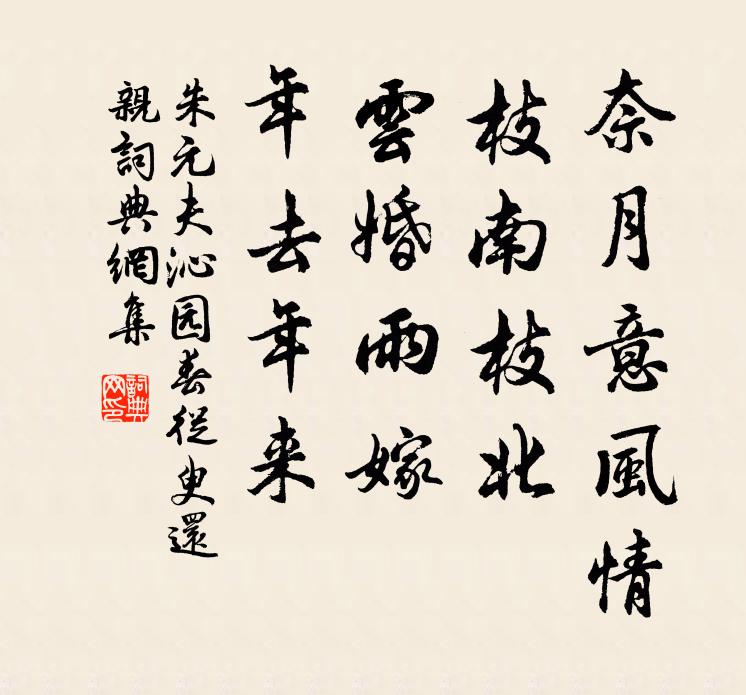 奈月意風情
枝南枝北
雲婚雨嫁
年去年来
朱元夫沁园春從臾還
親詞典網集
詞典
网印